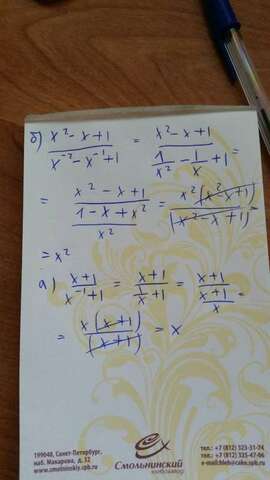 б) (x² - x + 1)/(x⁻² - x⁻¹ + 1) = (x² - x + 1)/(1/x² - 1/x + 1) =
= (x² - x + 1)/((1 - x + x²)/x²) = x²(x² - x + 1)/(x² - x + 1) =
= x²
а) (x + 1)/(x⁻¹ + 1) = (x + 1)/(1/x + 1) = (x + 1)/((x + 1)/x) =
= x(x + 1)/(x + 1) = x
199048, Санкт-Петербург,
наб. Макарова, д. 32
www.smolninskiy.spb.ru
Смольнинский
хлебозавод
тел.: +7 (812) 323-31-74